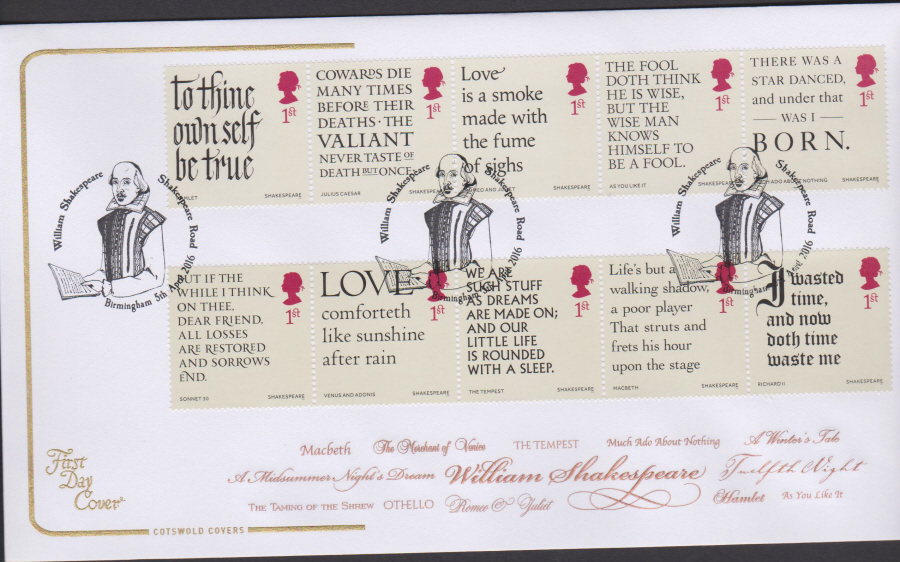 to thine
own self
be true
1st
HAMLET SHAKESPEARE
COWARDS DIE
MANY TIMES
BEFORE THEIR
DEATHS · THE
VALIANT
NEVER TASTE OF
DEATH BUT ONCE
1st
JULIUS CAESAR SHAKESPEARE
Love
is a smoke
made with
the fume
of sighs
1st
ROMEO AND JULIET SHAKESPEARE
THE FOOL
DOTH THINK
HE IS WISE,
BUT THE
WISE MAN
KNOWS
HIMSELF TO
BE A FOOL.
1st
AS YOU LIKE IT SHAKESPEARE
THERE WAS A
STAR DANCED,
and under that
WAS I
BORN.
1st
MUCH ADO ABOUT NOTHING SHAKESPEARE
William Shakespeare Shakespeare Road
Birmingham 5th April 2016
William Shakespeare Shakespeare Road
Birmingham 5th April 2016
William Shakespeare Shakespeare Road
Birmingham 2016
BUT IF THE
WHILE I THINK
ON THEE,
DEAR FRIEND,
ALL LOSSES
ARE RESTORED
AND SORROWS
END.
1st
SONNET 30 SHAKESPEARE
LOVE
comforteth
like sunshine
after rain
1st
VENUS AND ADONIS SHAKESPEARE
WE ARE
SUCH STUFF
AS DREAMS
ARE MADE ON;
AND OUR
LITTLE LIFE
IS ROUNDED
WITH A SLEEP.
1st
THE TEMPEST SHAKESPEARE
Life's but a
walking shadow,
a poor player
That struts and
frets his hour
upon the stage
1st
MACBETH SHAKESPEARE
I wasted
time,
and now
doth time
waste me
1st
RICHARD II SHAKESPEARE
First
Day
Cover
COTSWOLD COVERS
Macbeth The Merchant of Venice THE TEMPEST Much Ado About Nothing A Winter's Tale
A Midsummer Night's Dream William Shakespeare Twelfth Night
THE TAMING OF THE SHREW OTHELLO Romeo & Juliet Hamlet As You Like It